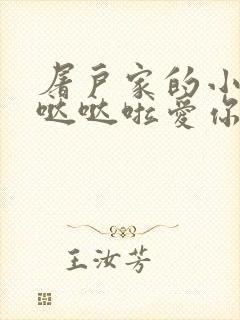 屠户家的小
哒哒啦爱你
王汝芳